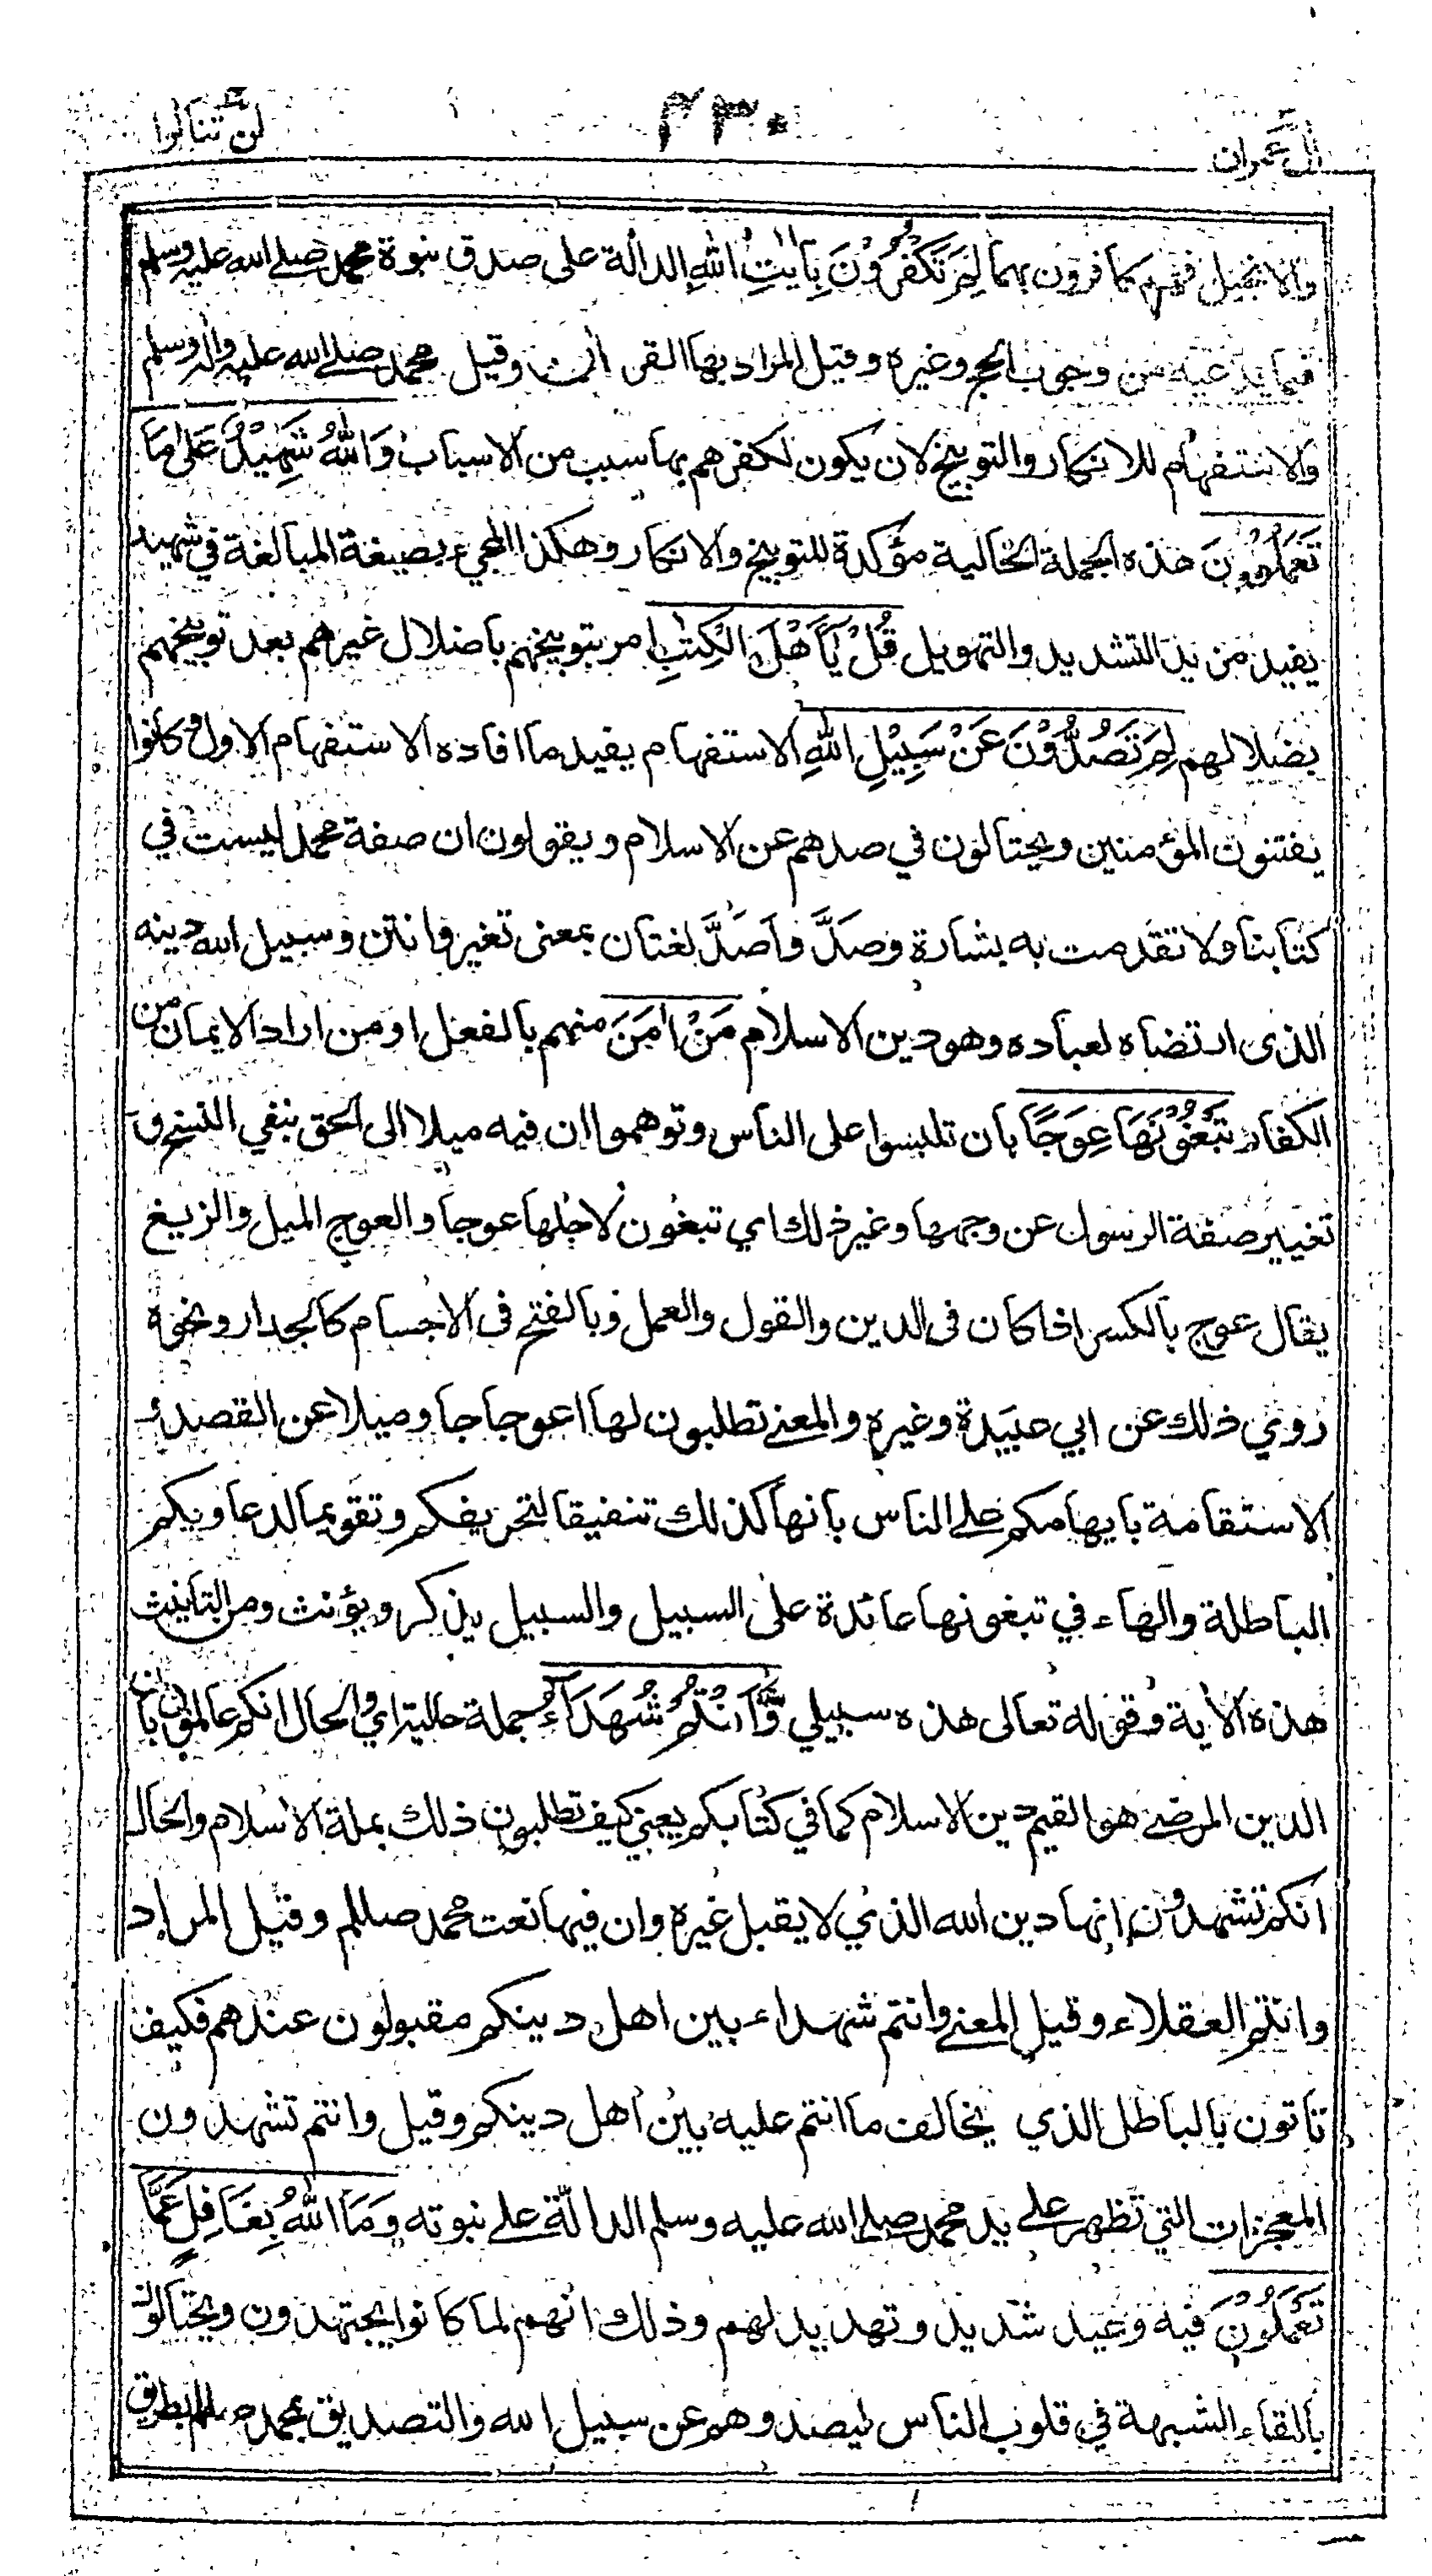 لن تنالوا
٢٣٠
ال عمران
والانجيل فهم كافرون بهما لِمَ تَكْفُرُوْنَ بِاٰيٰتِ اللّٰهِ الدالة على صدق نبوة محمد صلى الله عليه وسلم
فيما يدعيه من وجوب الحج وغيره وقيل المراد بها القرآن وقيل محمد صلى الله عليه واله وسلم
والاستفهام للانكار والتوبيخ لان يكون لكفرهم بها سبب من الاسباب وَاللّٰهُ شَهِيْدٌ عَلٰى مَا
تَعْمَلُوْنَ هذه الجملة الحالية مؤكدة للتوبيخ والانكار وهكذا المجيء بصيغة المبالغة في شهيد
يفيد مزيد التشديد والتهويل قُلْ يٰٓاَهْلَ الْكِتٰبِ امر بتوبيخهم باضلال غيرهم بعد توبيخهم
بضلالهم لِمَ تَصُدُّوْنَ عَنْ سَبِيْلِ اللّٰهِ الاستفهام يفيد ما افاده الاستفهام الاول وكانوا
يفتنون المؤمنين ويحتالون في صدهم عن الاسلام ويقولون ان صفة محمد ليست في
كتابنا ولا تقدمت به بشارة وصَدَّ وأصَدَّ لغتان بمعنى تغير وانتن وسبيل الله دينه
الذى ارتضاه لعباده وهو دين الاسلام مَنْ اٰمَنَ منهم بالفعل او من اراد الايمان من
الكفار تَبْغُوْنَهَا عِوَجًا بان تلبسوا على الناس وتوهموا ان فيه ميلا الى الحق بنفي النسخ و
تغيير صفة الرسول عن وجهها وغير ذلك اي تبغون لاجلها عوجا والعوج الميل والزيغ
يقال عوج بالكسر اذا كان فى الدين والقول والعمل وبالفتح فى الاجسام كالجدار ونحوه
روي ذلك عن ابي عبيدة وغيره والمعنى تطلبون لها اعوجاجا وميلا عن القصد و
الاستقامة بايهامكم على الناس بانها كذلك تنفيقا لتحريفكم وتقويما لدعاويكم
الباطلة والهاء في تبغونها عائدة على السبيل والسبيل يذكر ويؤنث ومن التأنيث
هذه الآية وقوله تعالى هذه سبيلي وَّاَنْتُمْ شُهَدَآءُ جملة حالية اي والحال انكم عالمون بان
الدين المرضي هو القيم دين الاسلام كما في كتابكم يعني كيف تطلبون ذلك بملة الاسلام والحال
انكم تشهدون انها دين الله الذي لا يقبل غيره وان فيها نعت محمد صللم وقيل المراد
وانتم العقلاء وقيل المعنى وانتم شهداء بين اهل دينكم مقبولون عندهم فكيف
تاتون بالباطل الذي يخالف ما انتم عليه بين اهل دينكم وقيل وانتم تشهدون
المعجزات التي تظهر على يد محمد صلى الله عليه وسلم الدالة على نبوته وَمَا اللّٰهُ بِغَافِلٍ عَمَّا
تَعْمَلُوْنَ فيه وعيد شديد وتهديد لهم وذلك انهم لما كانوا يجتهدون ويحتالون
بالقاء الشبهة في قلوب الناس ليصدوهم عن سبيل الله والتصديق بمحمد صللم بطريق